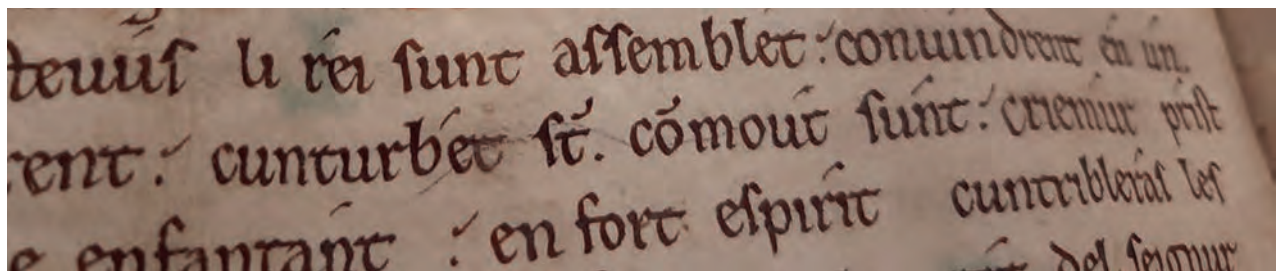 li rei sunt assemblet: conuindrent en un.
rent: cunturbét st̄. cōmout sunt: criemur prist
enfantant: en fort espirit cuntribleras les
del seignur